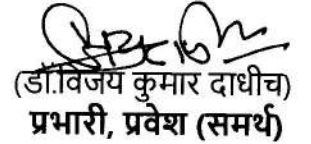 (डॉ.विजय कुमार दाधीच)
प्रभारी, प्रवेश (समर्थ)